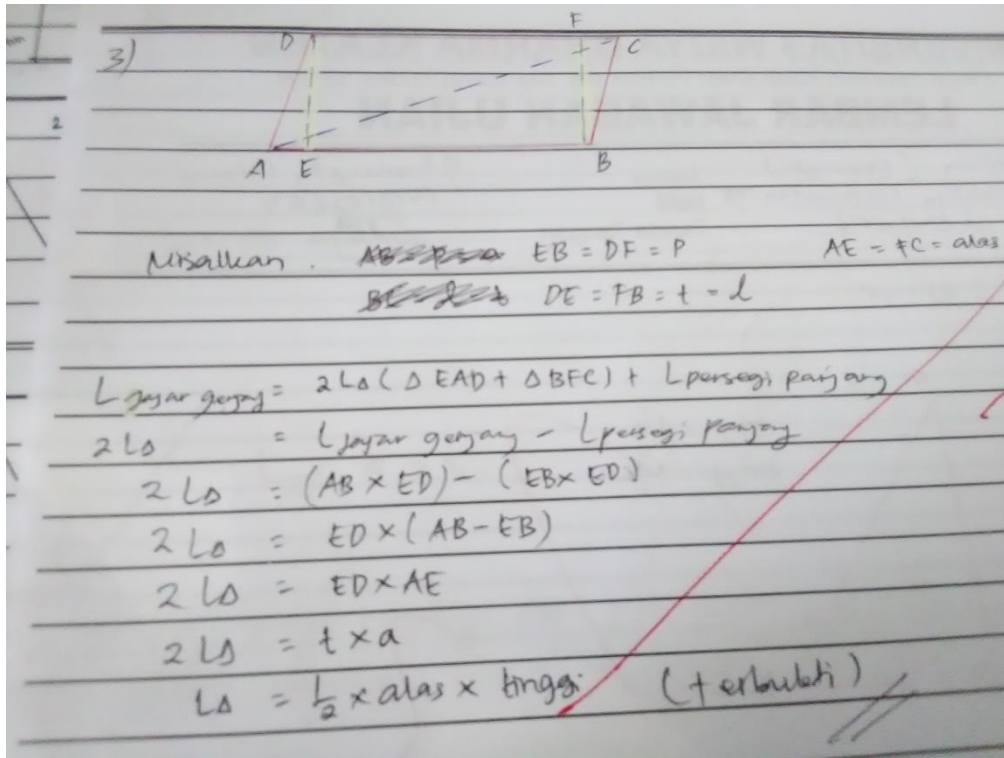 3)
D F C
A E B
Misalkan . EB = DF = P AE = FC = alas
DE = FB = t = l
L jajar genjang = 2 L∆ ( ∆ EAD + ∆ BFC) + L persegi panjang
2 L∆ = L jajar genjang - L persegi panjang
2 L∆ = (AB × ED) - ( EB × ED)
2 L∆ = ED × ( AB - EB)
2 L∆ = ED × AE
2 L∆ = t × a
L∆ = 1/2 × alas × tinggi (terbukti)
2